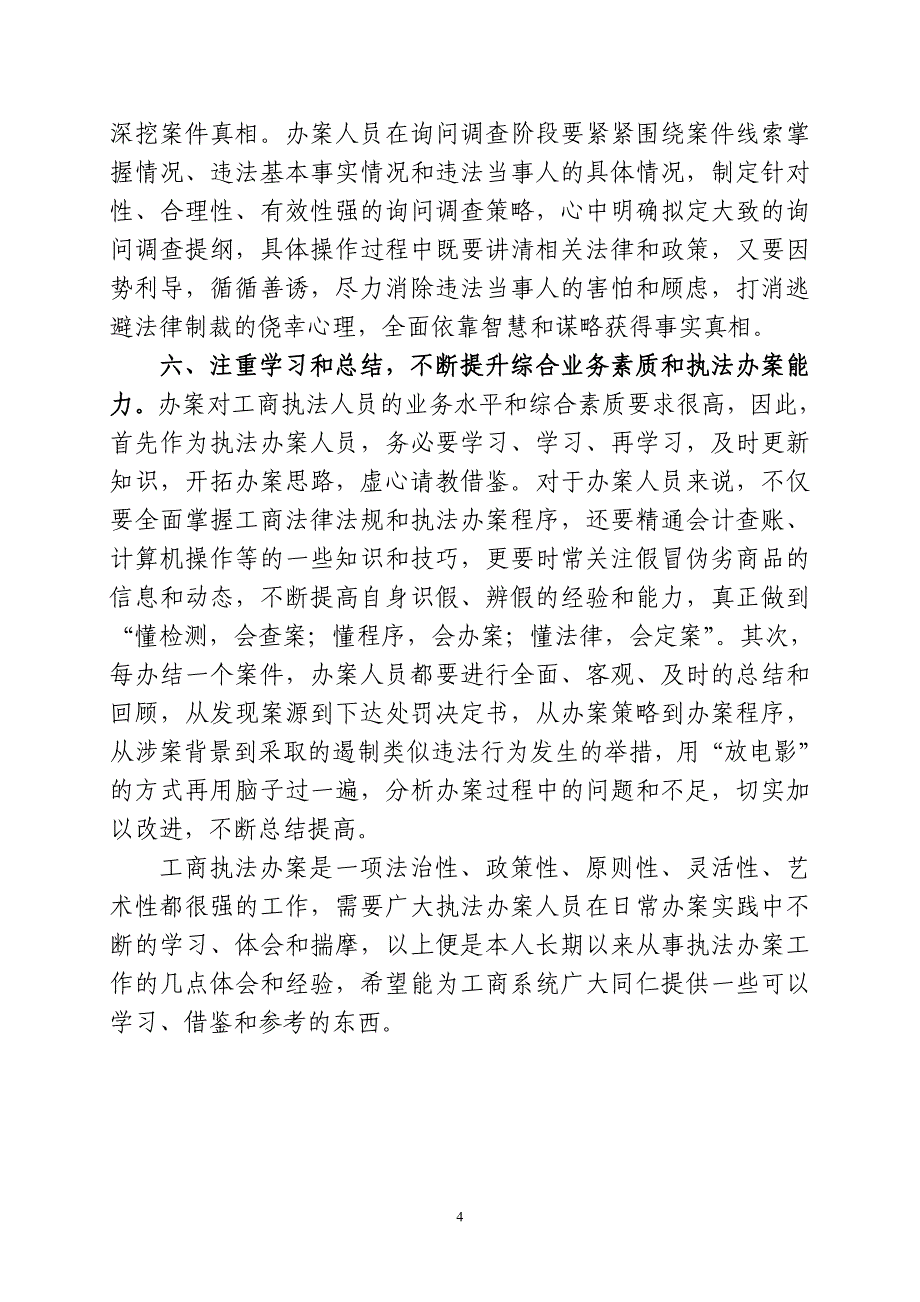 深挖案件真相。办案人员在询问调查阶段要紧紧围绕案件线索掌
握情况、违法基本事实情况和违法当事人的具体情况，制定针对
性、合理性、有效性强的询问调查策略，心中明确拟定大致的询
问调查提纲，具体操作过程中既要讲清相关法律和政策，又要因
势利导，循循善诱，尽力消除违法当事人的害怕和顾虑，打消逃
避法律制裁的侥幸心理，全面依靠智慧和谋略获得事实真相。
六、注重学习和总结，不断提升综合业务素质和执法办案能
力。办案对工商执法人员的业务水平和综合素质要求很高，因此，
首先作为执法办案人员，务必要学习、学习、再学习，及时更新
知识，开拓办案思路，虚心请教借鉴。对于办案人员来说，不仅
要全面掌握工商法律法规和执法办案程序，还要精通会计查账、
计算机操作等的一些知识和技巧，更要时常关注假冒伪劣商品的
信息和动态，不断提高自身识假、辨假的经验和能力，真正做到
“懂检测，会查案；懂程序，会办案；懂法律，会定案”。其次，
每办结一个案件，办案人员都要进行全面、客观、及时的总结和
回顾，从发现案源到下达处罚决定书，从办案策略到办案程序，
从涉案背景到采取的遏制类似违法行为发生的举措，用“放电影”
的方式再用脑子过一遍，分析办案过程中的问题和不足，切实加
以改进，不断总结提高。
工商执法办案是一项法治性、政策性、原则性、灵活性、艺
术性都很强的工作，需要广大执法办案人员在日常办案实践中不
断的学习、体会和揣摩，以上便是本人长期以来从事执法办案工
作的几点体会和经验，希望能为工商系统广大同仁提供一些可以
学习、借鉴和参考的东西。
4